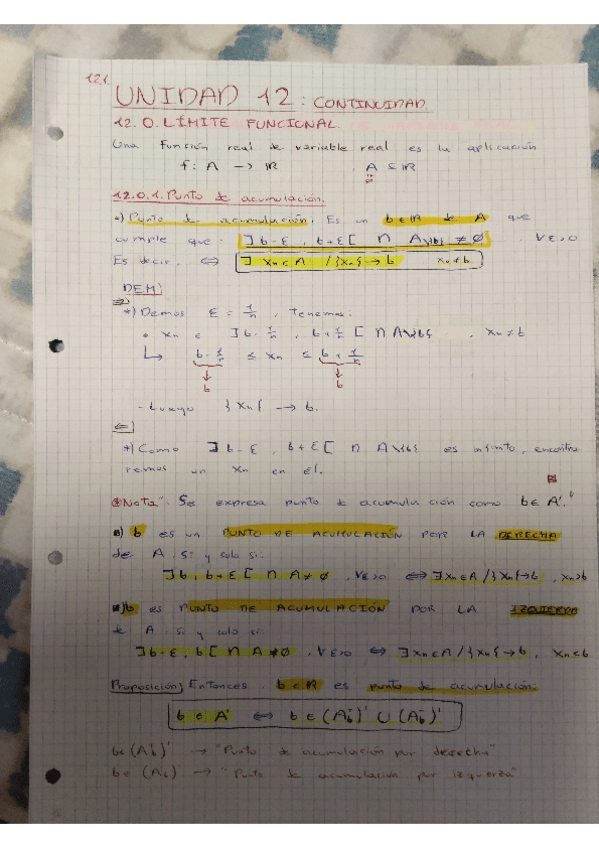 121.
UNIDAD 12: CONTINUIDAD
12.0. LÍMITE FUNCIONAL
Una función real de variable real es la aplicación
f: A -> ℝ A ⊆ ℝ
12.0.1. Punto de acumulación.
•) Punto de acumulación: Es un b∈ℝ de A que
cumple que: ]b-ε, b+ε[ ∩ A\{b} ≠ ∅ . ∀ε>0
Es decir, ⇔ ∃ xn∈A / {xn} → b xn≠b
DEM:
⇒
*) Demos ε = 1/n , tenemos:
• xn ∈ ]b-1/n, b+1/n[ ∩ A\{b} , xn≠b
↳ b-1/n ≤ xn ≤ b+1/n
↓ ↓
b b
- Luego {xn} → b.
⇐
*) Como ]b-ε, b+ε[ ∩ A\{b} es infinito, encontra
remos un xn en él.
"Nota": Se expresa punto de acumulación como b∈A'.
b es un PUNTO DE ACUMULACIÓN POR LA DERECHA
de A si y solo si:
]b, b+ε[ ∩ A ≠ ∅ , ∀ε>0 ⇔ ∃ xn∈A / {xn}→b , xn>b
b es PUNTO DE ACUMULACIÓN POR LA IZQUIERDA
de A si y solo si
]b-ε, b[ ∩ A ≠ ∅ , ∀ε>0 ⇔ ∃ xn∈A / {xn}→b , xn<b
Proposición) Entonces , b∈ℝ es punto de acumulación:
b∈A' ⇔
-> "Punto de acumulación por derecha"
-> "Punto de acumulación por izquerza"